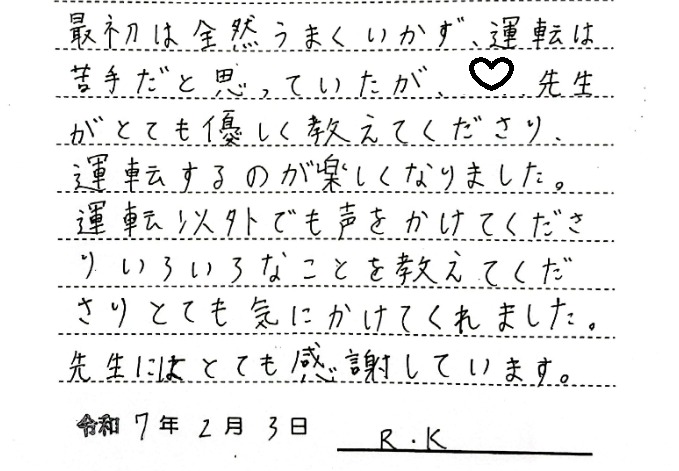 最初は全然うまくいかず、運転は
苦手だと思っていたが、♡先生
がとても優しく教えてくださり、
運転するのが楽しくなりました。
運転以外でも声をかけてくださ
りいろいろなことを教えてくだ
さりとても気にかけてくれました。
先生にはとても感謝しています。
令和7年2月3日 R.K